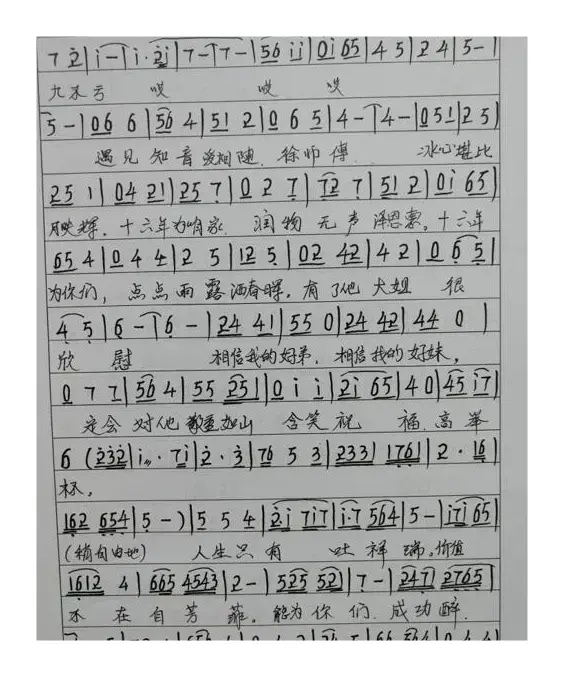 7 2̇|i̇ —|i̇·2̇i̇|7 —|7 —|56 i̇i̇|0i̇ 65|4 5|2 4|5 —|
九泉兮 哎 哎 哎
5 —|06 6|56 4|51 2|0 6 5|4 —|4 —|051|2 5|
遇见知音爱相随.徐师傅 冰心堪比
25 1|04 21|25 7̣|0 2 7̣|7̣2 7̣|51 2|0i̇ 65|
月映辉.十六年为咱家.润物无声泽恩惠.十六年
65 4|0 4 4|2 5|12 5̣|02 42|4 2|0 6̣ 5̣|
为你们,点点雨露洒春晖.有了他大姐很
4̣ 5̣|6̣ —|6̣ —|24 41|55 0|24 42|44 0|
欣慰 相信我的好弟,相信我的好妹,
0 7 7|56 4|55 251|0 i̇ i̇|2̇i̇ 65|4 0|45 i̇7|
定会对他敬重如山 含笑祝福.高举
6 (2̇3̇2̇|i̇〃·7i̇|2̇·3̇|76 5 3|2331 1761|2·16|
杯,
162 654|5 —)|5 5 4|2̇·i̇ 7i̇7|i̇·7 564|5 —|i̇7i̇ 65|
(稍自由地) 人生只有 吐祥瑞.价值
1612 4|665 4543|2 —|525 521|7̣ —|247 2765|
不在自芳菲.能为你们.成功醉.